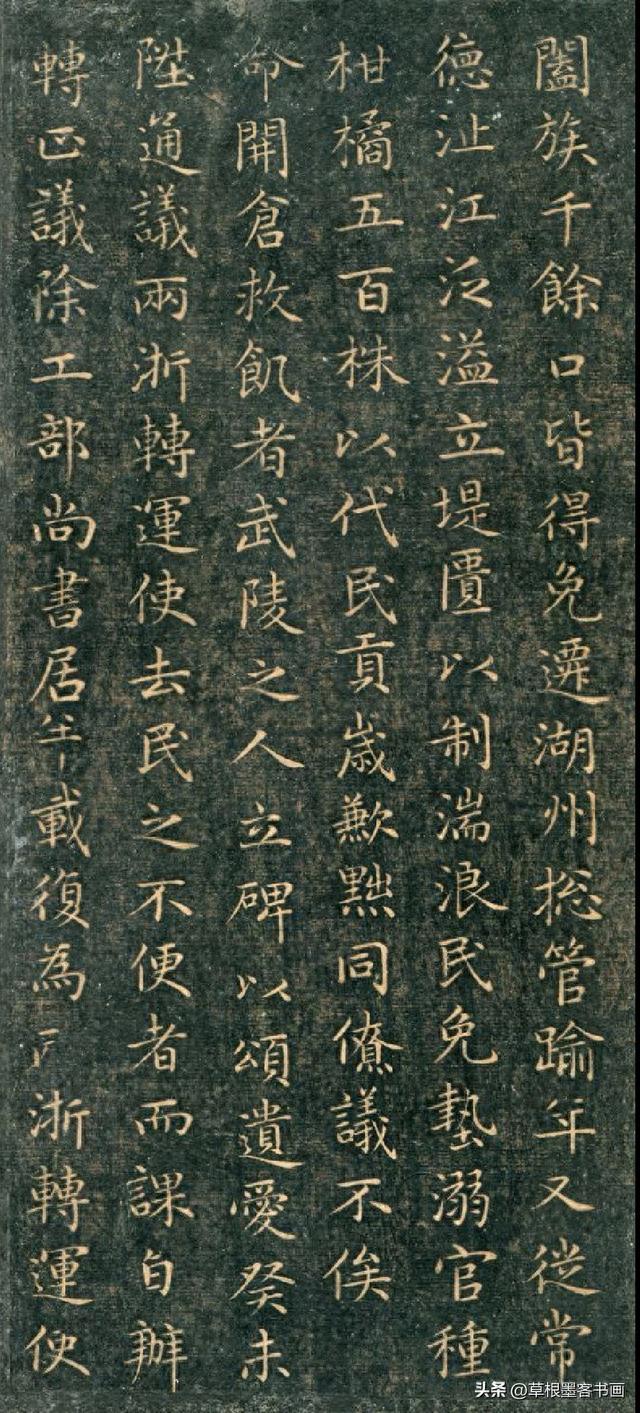 闔族千餘口皆得免遷湖州捴管踰年又從常
德沚江泛溢立堤匱以制湍浪民免墊溺官種
柑橘五百株以代民貢歲歉黜同僚議不俟
命開倉救飢者武陵之人立碑以頌遺愛癸未
陞通議兩浙轉運使去民之不便者而課自辦
轉正議除工部尚書居半載復為浙轉運使
头条 @草根墨客书画